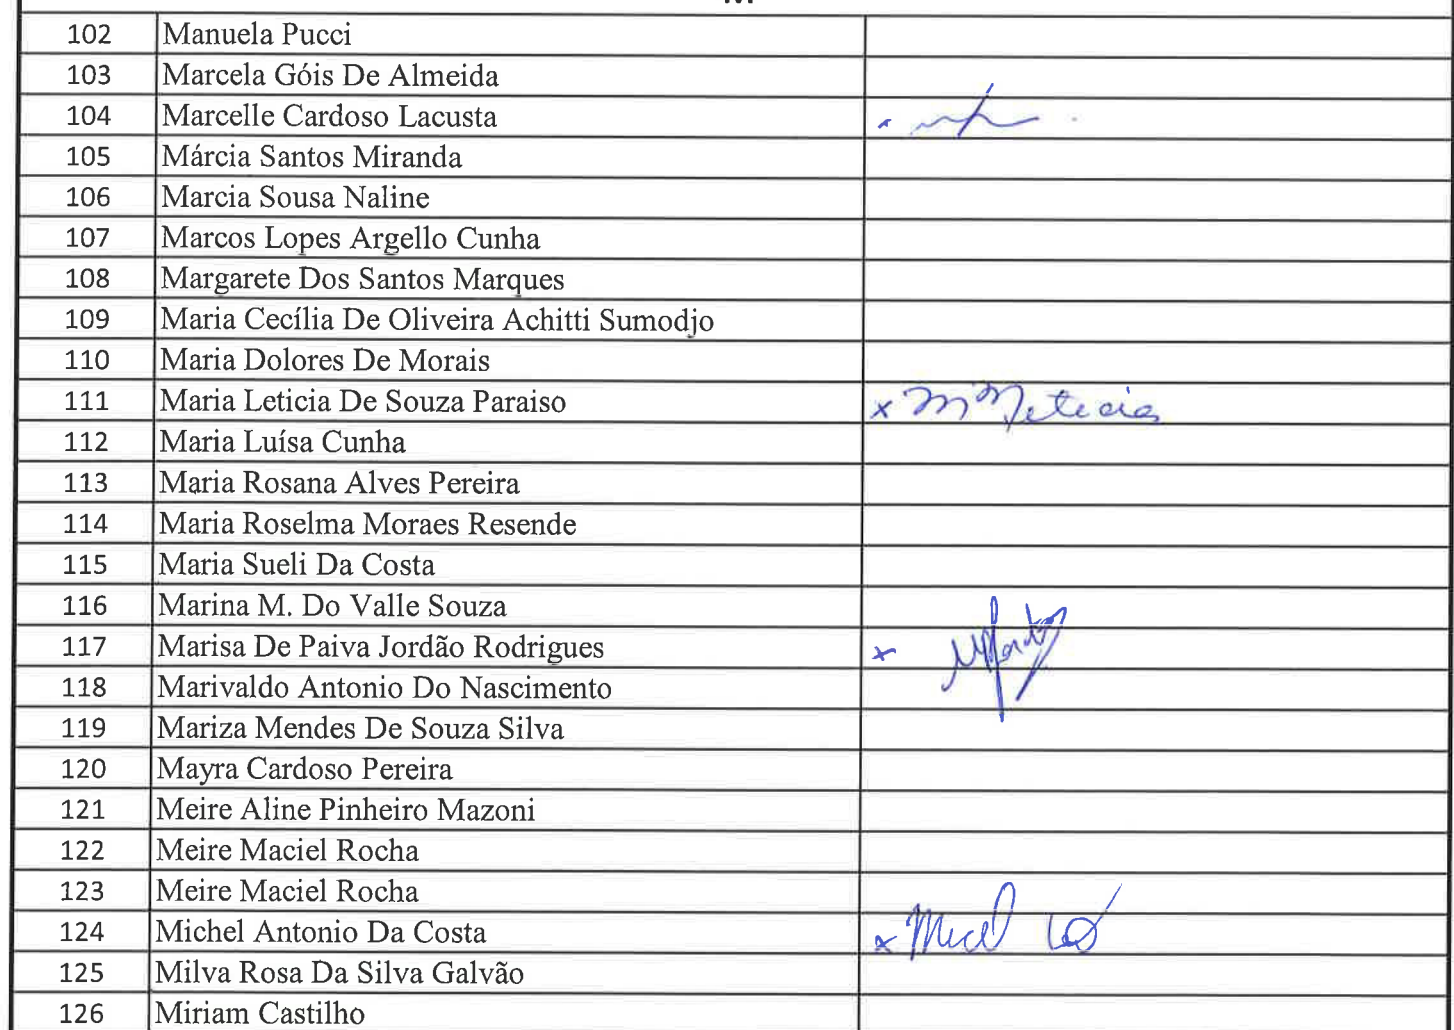 M
102 Manuela Pucci
103 Marcela Góis De Almeida
104 Marcelle Cardoso Lacusta
105 Márcia Santos Miranda
106 Marcia Sousa Naline
107 Marcos Lopes Argello Cunha
108 Margarete Dos Santos Marques
109 Maria Cecília De Oliveira Achitti Sumodjo
110 Maria Dolores De Morais
111 Maria Leticia De Souza Paraiso x
112 Maria Luísa Cunha
113 Maria Rosana Alves Pereira
114 Maria Roselma Moraes Resende
115 Maria Sueli Da Costa
116 Marina M. Do Valle Souza
117 Marisa De Paiva Jordão Rodrigues x
118 Marivaldo Antonio Do Nascimento
119 Mariza Mendes De Souza Silva
120 Mayra Cardoso Pereira
121 Meire Aline Pinheiro Mazoni
122 Meire Maciel Rocha
123 Meire Maciel Rocha
124 Michel Antonio Da Costa x
125 Milva Rosa Da Silva Galvão
126 Miriam Castilho